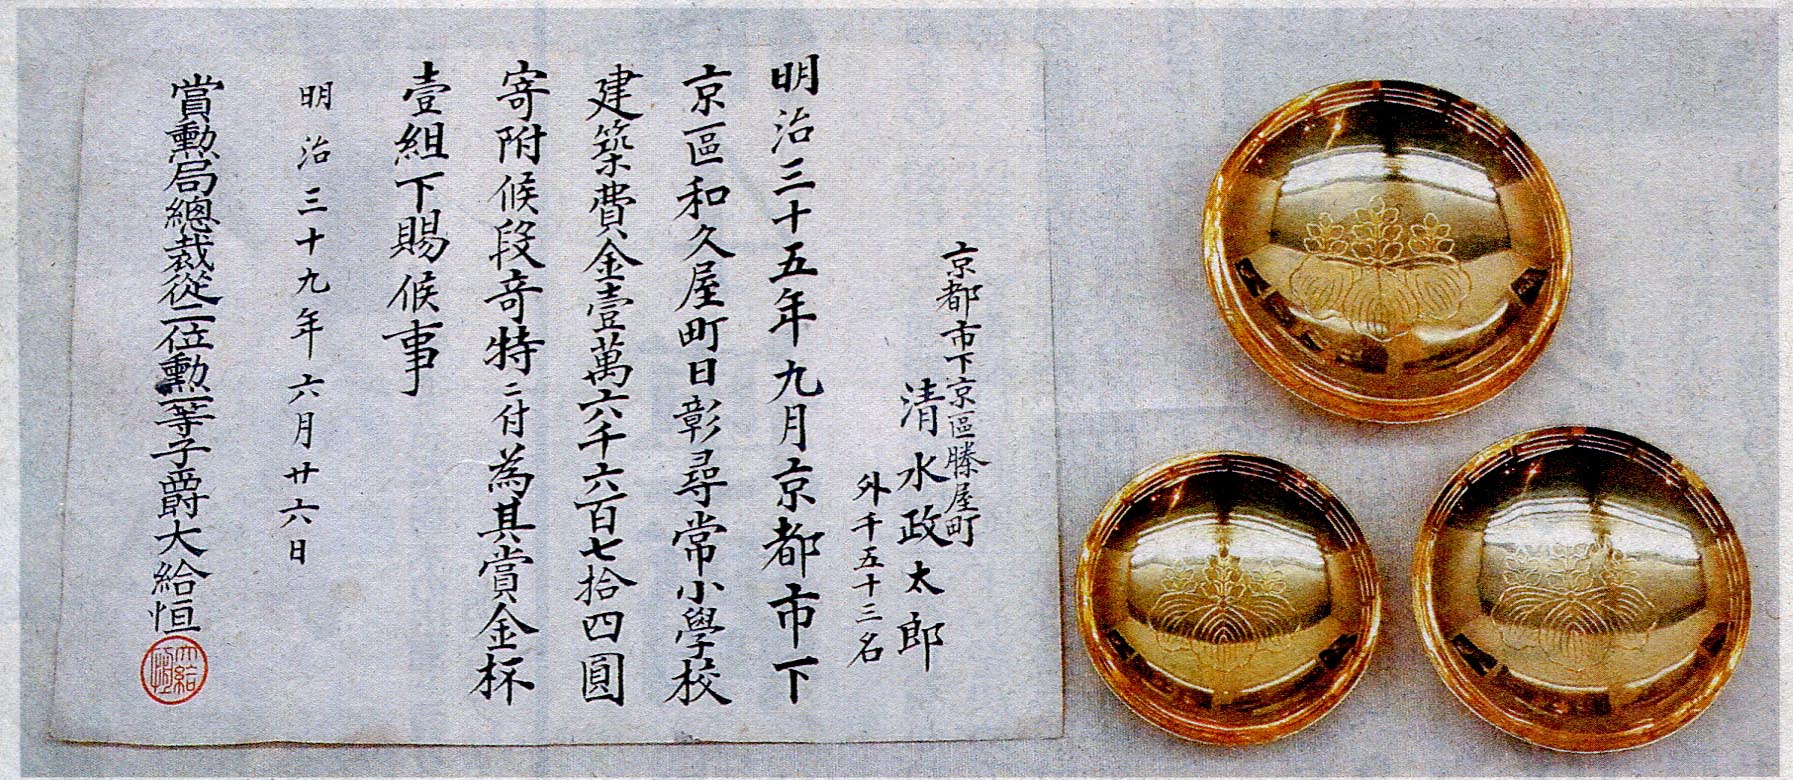 京都市下京區勝屋町
清水政太郎
外千五十三名
明治三十五年九月京都市下
京區和久屋町日彰尋常小學校
建築費金壹萬六千六百七拾四圓
寄附候段奇特ニ付為其賞金杯
壹組下賜候事
明治三十九年六月廿六日
賞勲局總裁從二位勲一等子爵大給恒
大給恒